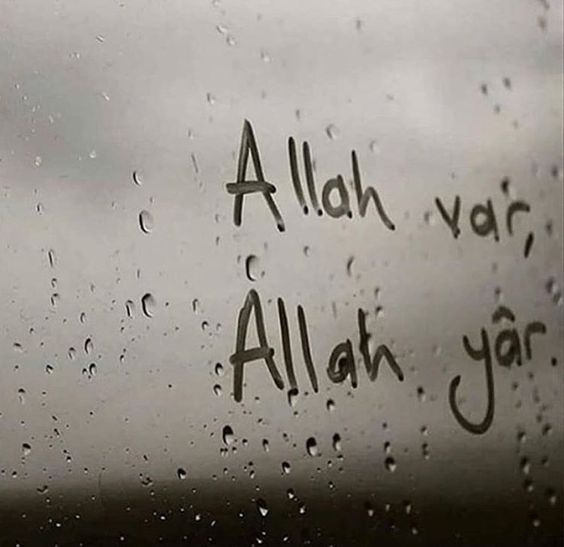 Allah var,
Allah yâr.